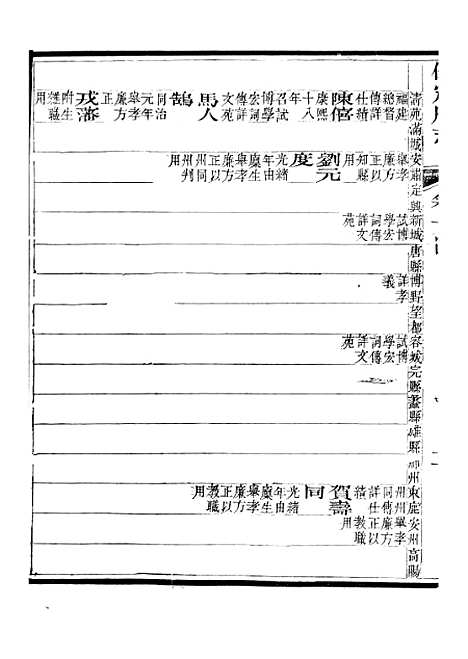 清苑滿城安肅定興新城唐縣博野望都容城完縣蠡縣雄縣祁州束鹿安州高陽
福建總督傳詳仕績
陳僖
康熙十八年召試博學宏詞傳詳文苑
馬人鵠
同治元年舉孝廉方正
戎藩
附生
職用
舉孝廉方正以知縣用
劉元度
光緒年由廩生舉孝廉方正以州同州判用
試博學宏詞傳詳文苑
詳孝義
試博學宏詞傳詳文苑
州同傳詳仕績
賀壽同
光緒年由廩生舉孝廉方正以教職用
舉孝廉方正以教職用